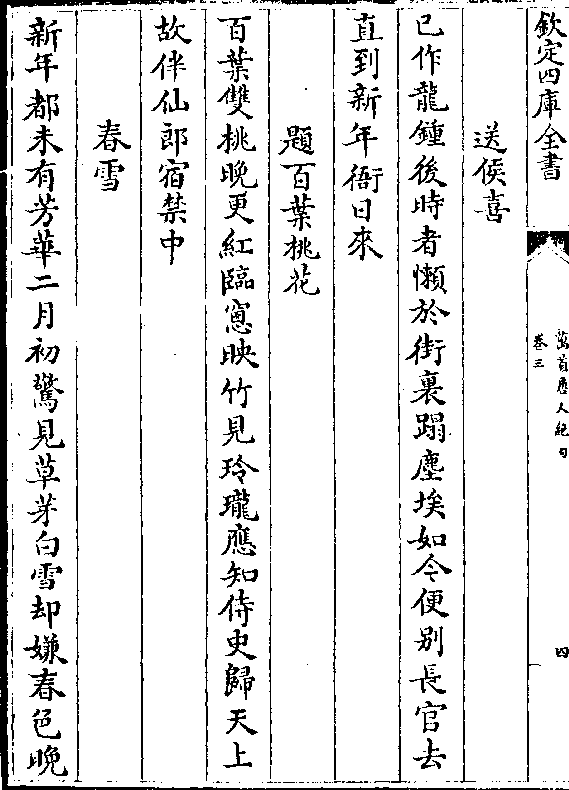 欽定四庫全書
萬首唐人絶句
卷三
四
送侯喜
已作龍鍾後時者懶於街裏蹋塵埃如今便别長官去
直到新年衙日來
題百葉桃花
百葉雙桃晚更紅臨窻映竹見玲瓏應知侍史歸天上
故伴仙郎宿禁中
春雪
新年都未有芳華二月初驚見草芽白雪却嫌春色晚